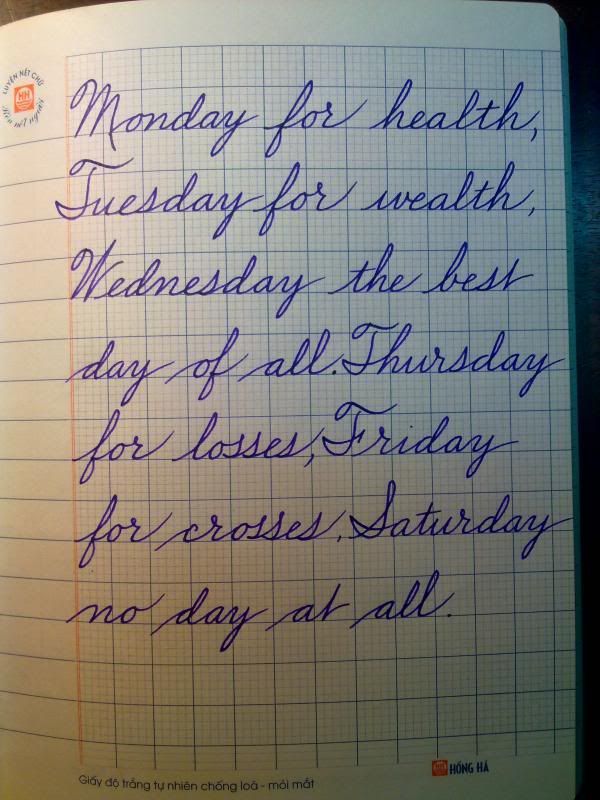 LUYỆN NÉT CHỮ
HH
Monday for health,
Tuesday for wealth,
Wednesday the best
day of all. Thursday
for losses, Friday
for crosses, Saturday
no day at all.
HH HỒNG HÀ
Giấy độ trắng tự nhiên chống loá - mỏi mắt